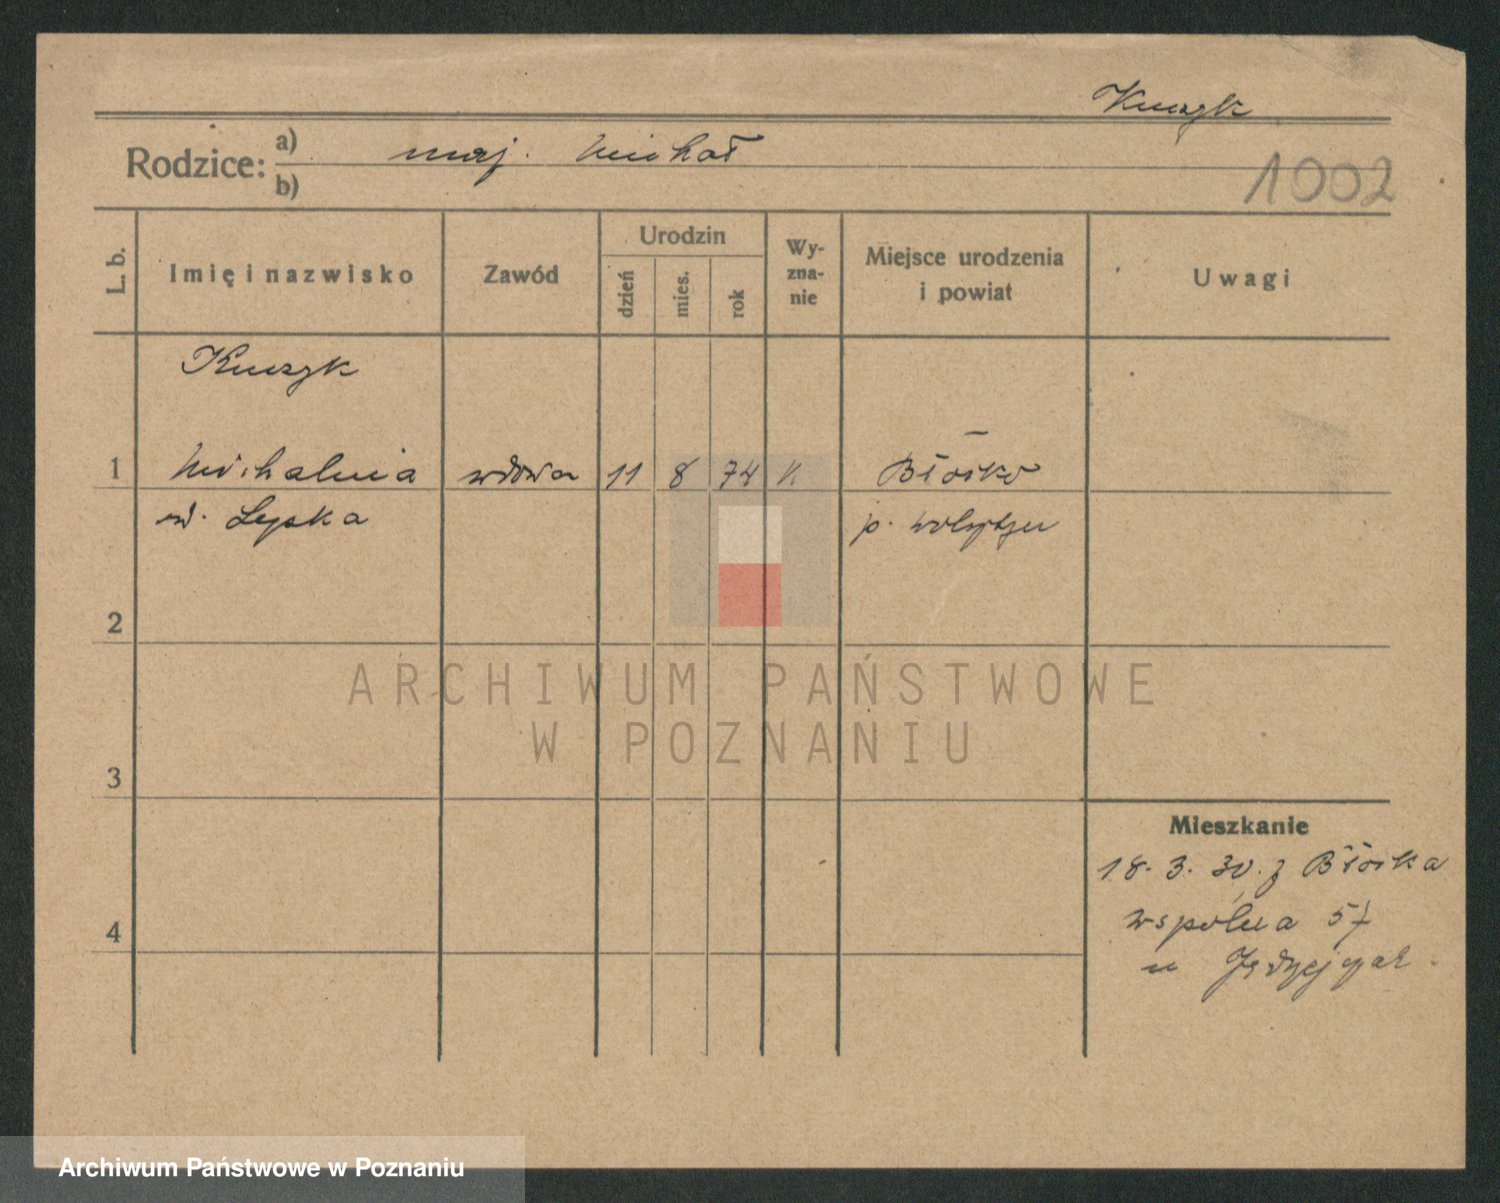 Kuszyk
Rodzice: a) maj. Michał
b)
1002
L. b.
Imię i nazwisko
Zawód
Urodzin
dzień
mies.
rok
Wy-
zna-
nie
Miejsce urodzenia
i powiat
Uwagi
Kuszyk
1 Michalina wdowa 11 8 74 K Błońko
p. Wolsztyn
2
3
4
Mieszkanie
18. 3. 30. z Błońka
wspólna 57
u
ARCHIWUM PAŃSTWOWE
W POZNANIU
Archiwum Państwowe w Poznaniu